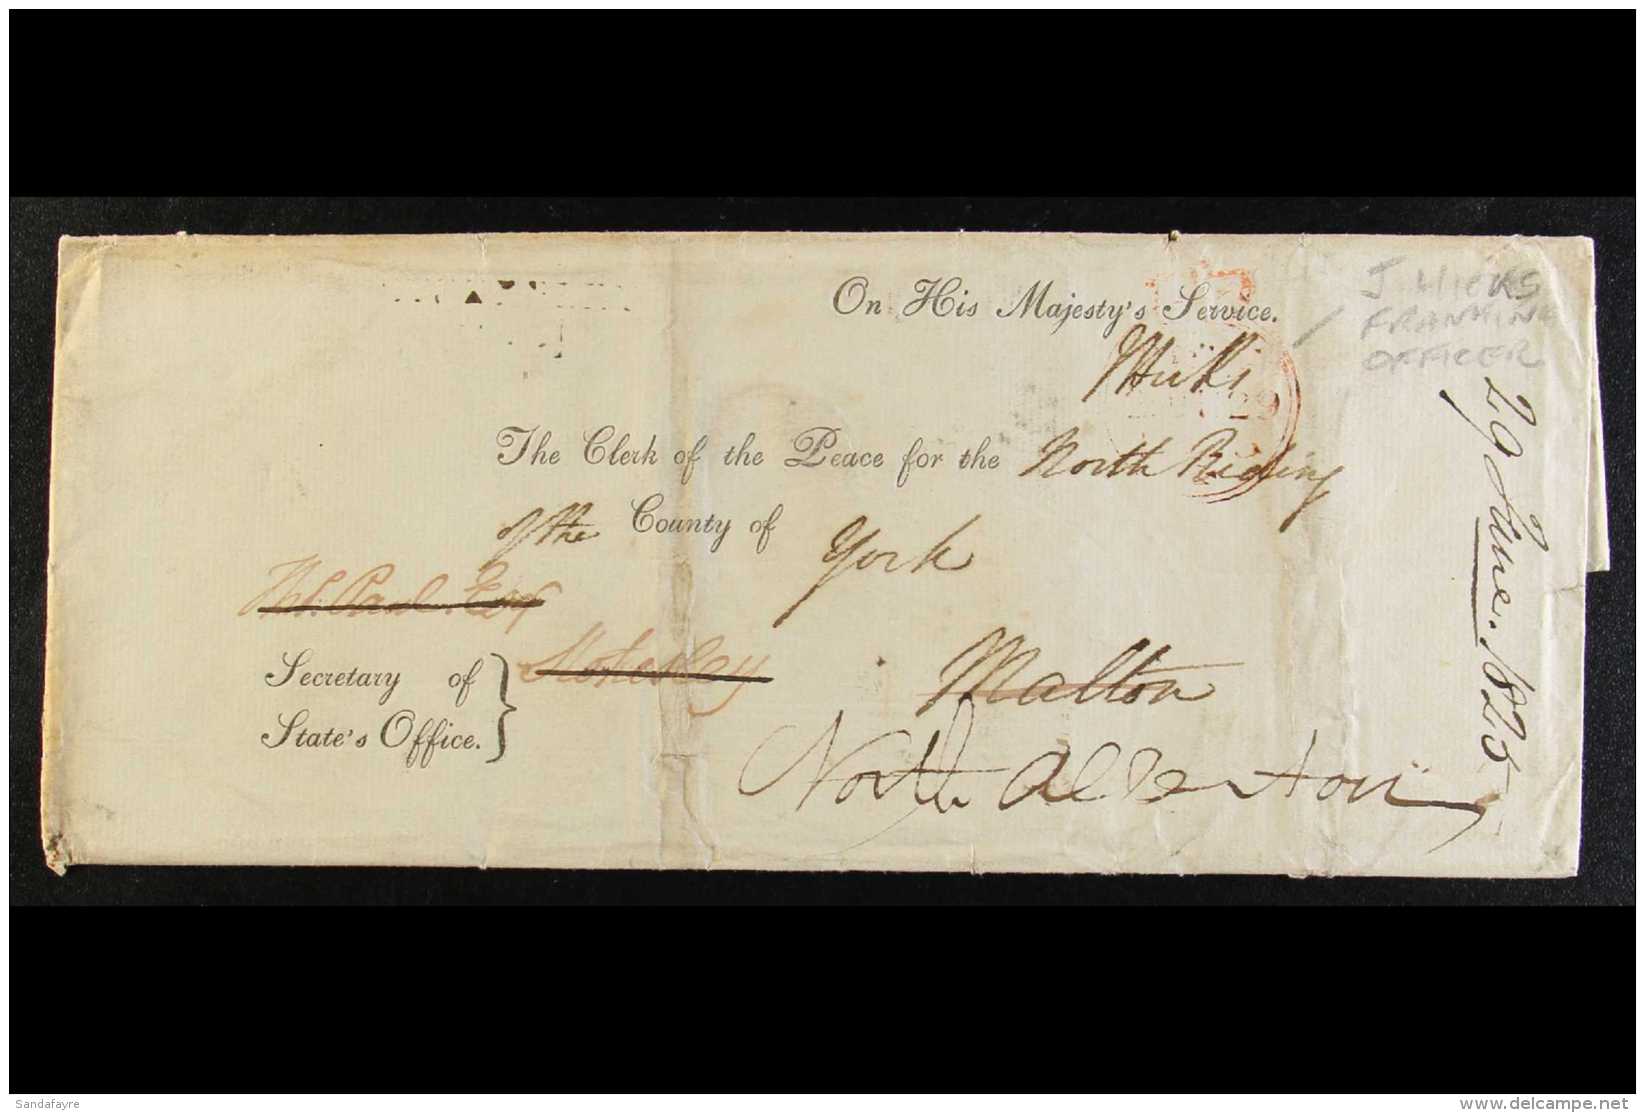 On His Majesty's Service.
J Hicks
FRANKING
OFFICER
JHicks
29
The Clerk of the Peace for the North Riding
of the County of York
Esq
Stokesley
Secretary of
State's Office.
Malton
North Allerton
29 June. 1825
Sandafayre
delcampe.net